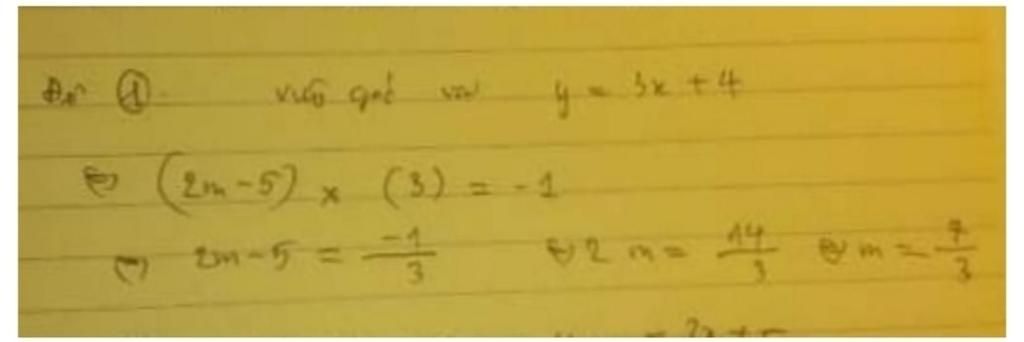 Để (1) vuông góc với y = 3x + 4
⇔ (2m - 5) × (3) = -1
⇔ 2m - 5 = -1/3 ⇔ 2m = 14/3 ⇔ m = 7/3